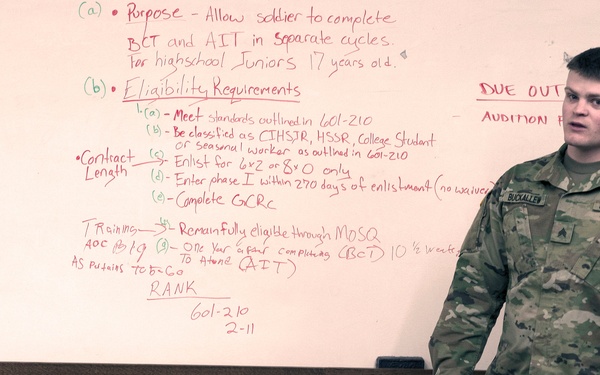 (a) • Purpose - Allow soldier to complete
BCT and AIT in separate cycles.
For highschool Juniors 17 years old.
(b) • Eligibility Requirements
1. (a) - Meet standards outlined in 601-210
(b) - Be classified as CIHSJR, HSSR, College Student
or seasonal worker as outlined in 601-210
• Contract Length
(c) - Enlist for 6x2 or 8x0 only
(d) - Enter phase I within 270 days of enlistment (no waiver)
(e) - Complete GCRc
Training
Remain fully eligible through MOSQ
(g) - One Year after completing (BCT) 10 1/2 weeks
To Attend (AIT)
RANK
601-210
2-11
DUE OUT
AUDITION
BUCKALLEW